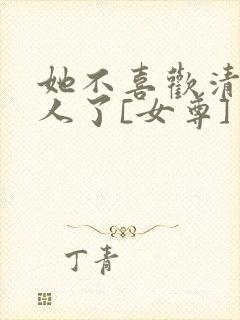 她不喜歡清
人了[女尊]
丁青